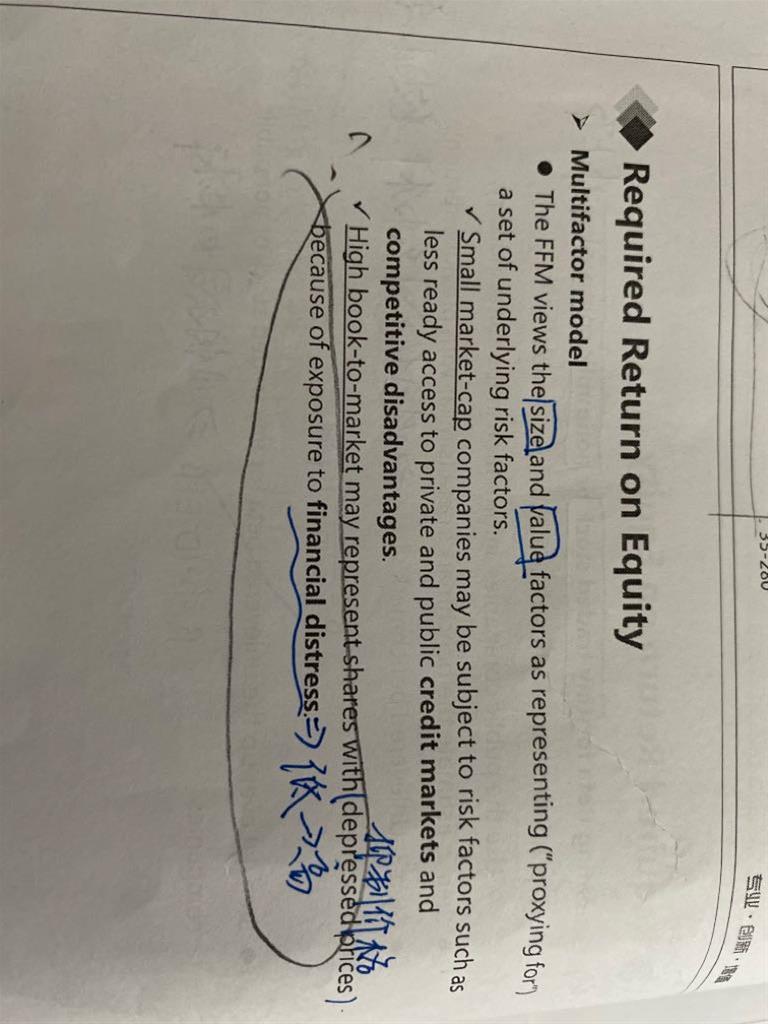 35-280
专业·创新·增值
Required Return on Equity
➢ Multifactor model
● The FFM views the size and value factors as representing ("proxying for")
a set of underlying risk factors.
✓ Small market-cap companies may be subject to risk factors such as
less ready access to private and public credit markets and
competitive disadvantages.
抑制价格
✓ High book-to-market may represent shares with (depressed prices)
because of exposure to financial distress. ⇒ 低→高